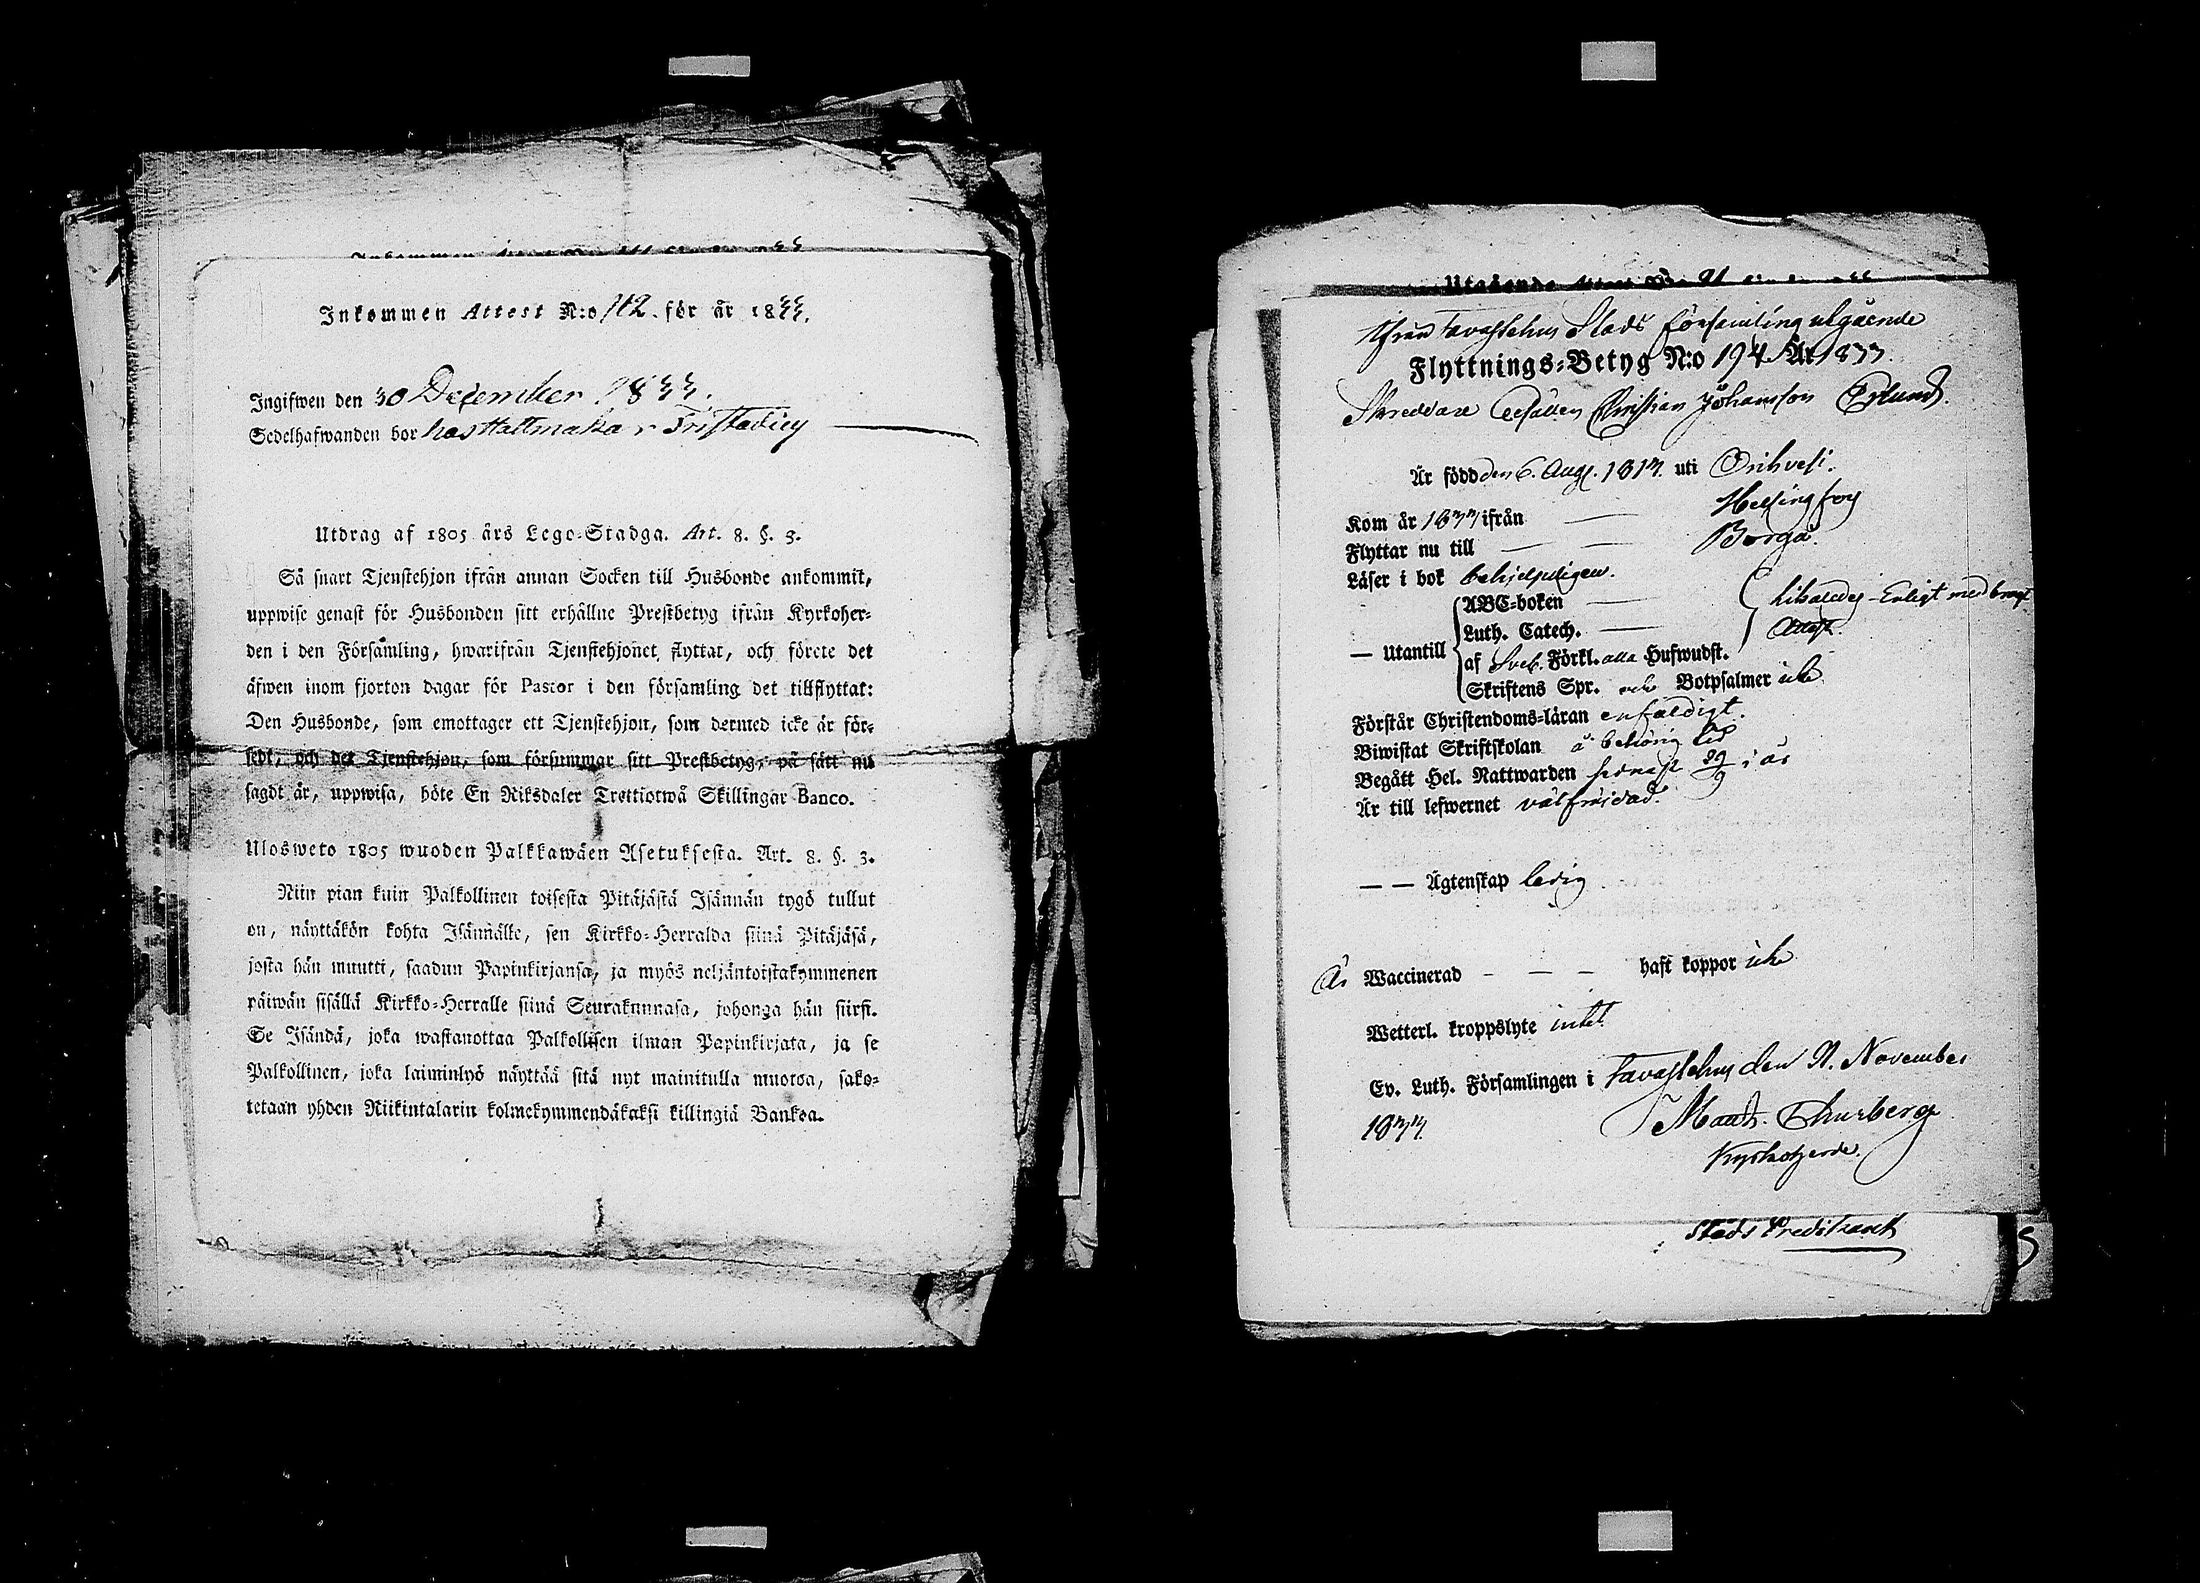 Inkommen Attest N:o 112. för år 1833.
Ingifwen den 30 December 1833.
Sedelhafwanden bor hos Hattmakar
Utdrag af 1805 års Lego-Stadga. Art. 8. §. 3.
Så snart Tjenstehjon ifrån annan Socken till Husbonde ankommit,
uppwise genast för Husbonden sitt erhållne Prestbetyg ifrån Kyrkoher-
den i den Församling, hwarifrån Tjenstehjonet flyttat, och förete det
äfwen inom fjorton dagar för Pastor i den församling det tillflyttat:
Den Husbonde, som emottager ett Tjenstehjon, som dermed icke är för-
sedt, och det Tjenstehjon, som försummar sitt Prestbetyg, på sätt nu
sagdt är, uppwisa, böte En Riksdaler Trettiotwå Skillingar Banco.
Ulosweto 1805 wuoden Palkkawäen Asetuksesta. Art. 8. §. 3.
Niin pian kuin Palkollinen toisesta Pitäjästä Isännän tygö tullut
on, näyttäkön kohta Isännälle, sen Kirkko-Herralda siinä Pitäjäsä,
josta hän muutti, saadun Papinkirjansa, ja myös neljäntoistakymmenen
päiwän sisällä Kirkko-Herralle siinä Seurakunnasa, johonga hän siirsi.
Se Isändä, joka wastanottaa Palkollisen ilman Papinkirjata, ja se
Palkollinen, joka laiminlyö näyttää sitä nyt mainitulla muotoa, sako-
tetaan yhden Riikintalarin kolmekymmendäkaksi killingiä Bankoa.
Utgående Attest
Ifrån Tavastehus Stads församling utgående
Flyttnings-Betyg N:o 194 År 1833.
Skreddare Gesällen Christian Johansson Orlund.
Är född den 6. Aug. 1813. uti Orihvesi.
Kom år 1833 ifrån — Helsingfors
Flyttar nu till — — Borgå.
Läser i bok behjelpligen.
— Utantill
ABC-boken —
Luth. Catech. —
likaledes Enligt medbragt
Attest.
af Sveb. Förkl. alla Hufwudst.
Skriftens Spr. och Botpsalmer icke
Förstår Christendoms-läran enfaldigt.
Biwistat Skriftskolan å behörig tid
Begått Hel. Nattwarden sednast 29/9 i år
Är till lefwernet välfrejdad.
— — Ägtenskap ledig
Är Waccinerad - — — haft koppor icke
Wetterl. kroppslyte intet
Ev. Luth. Församlingen i Tavastehus den 21. November
1833.
Thurberg
Kyrkoherde.
Stads Predikant